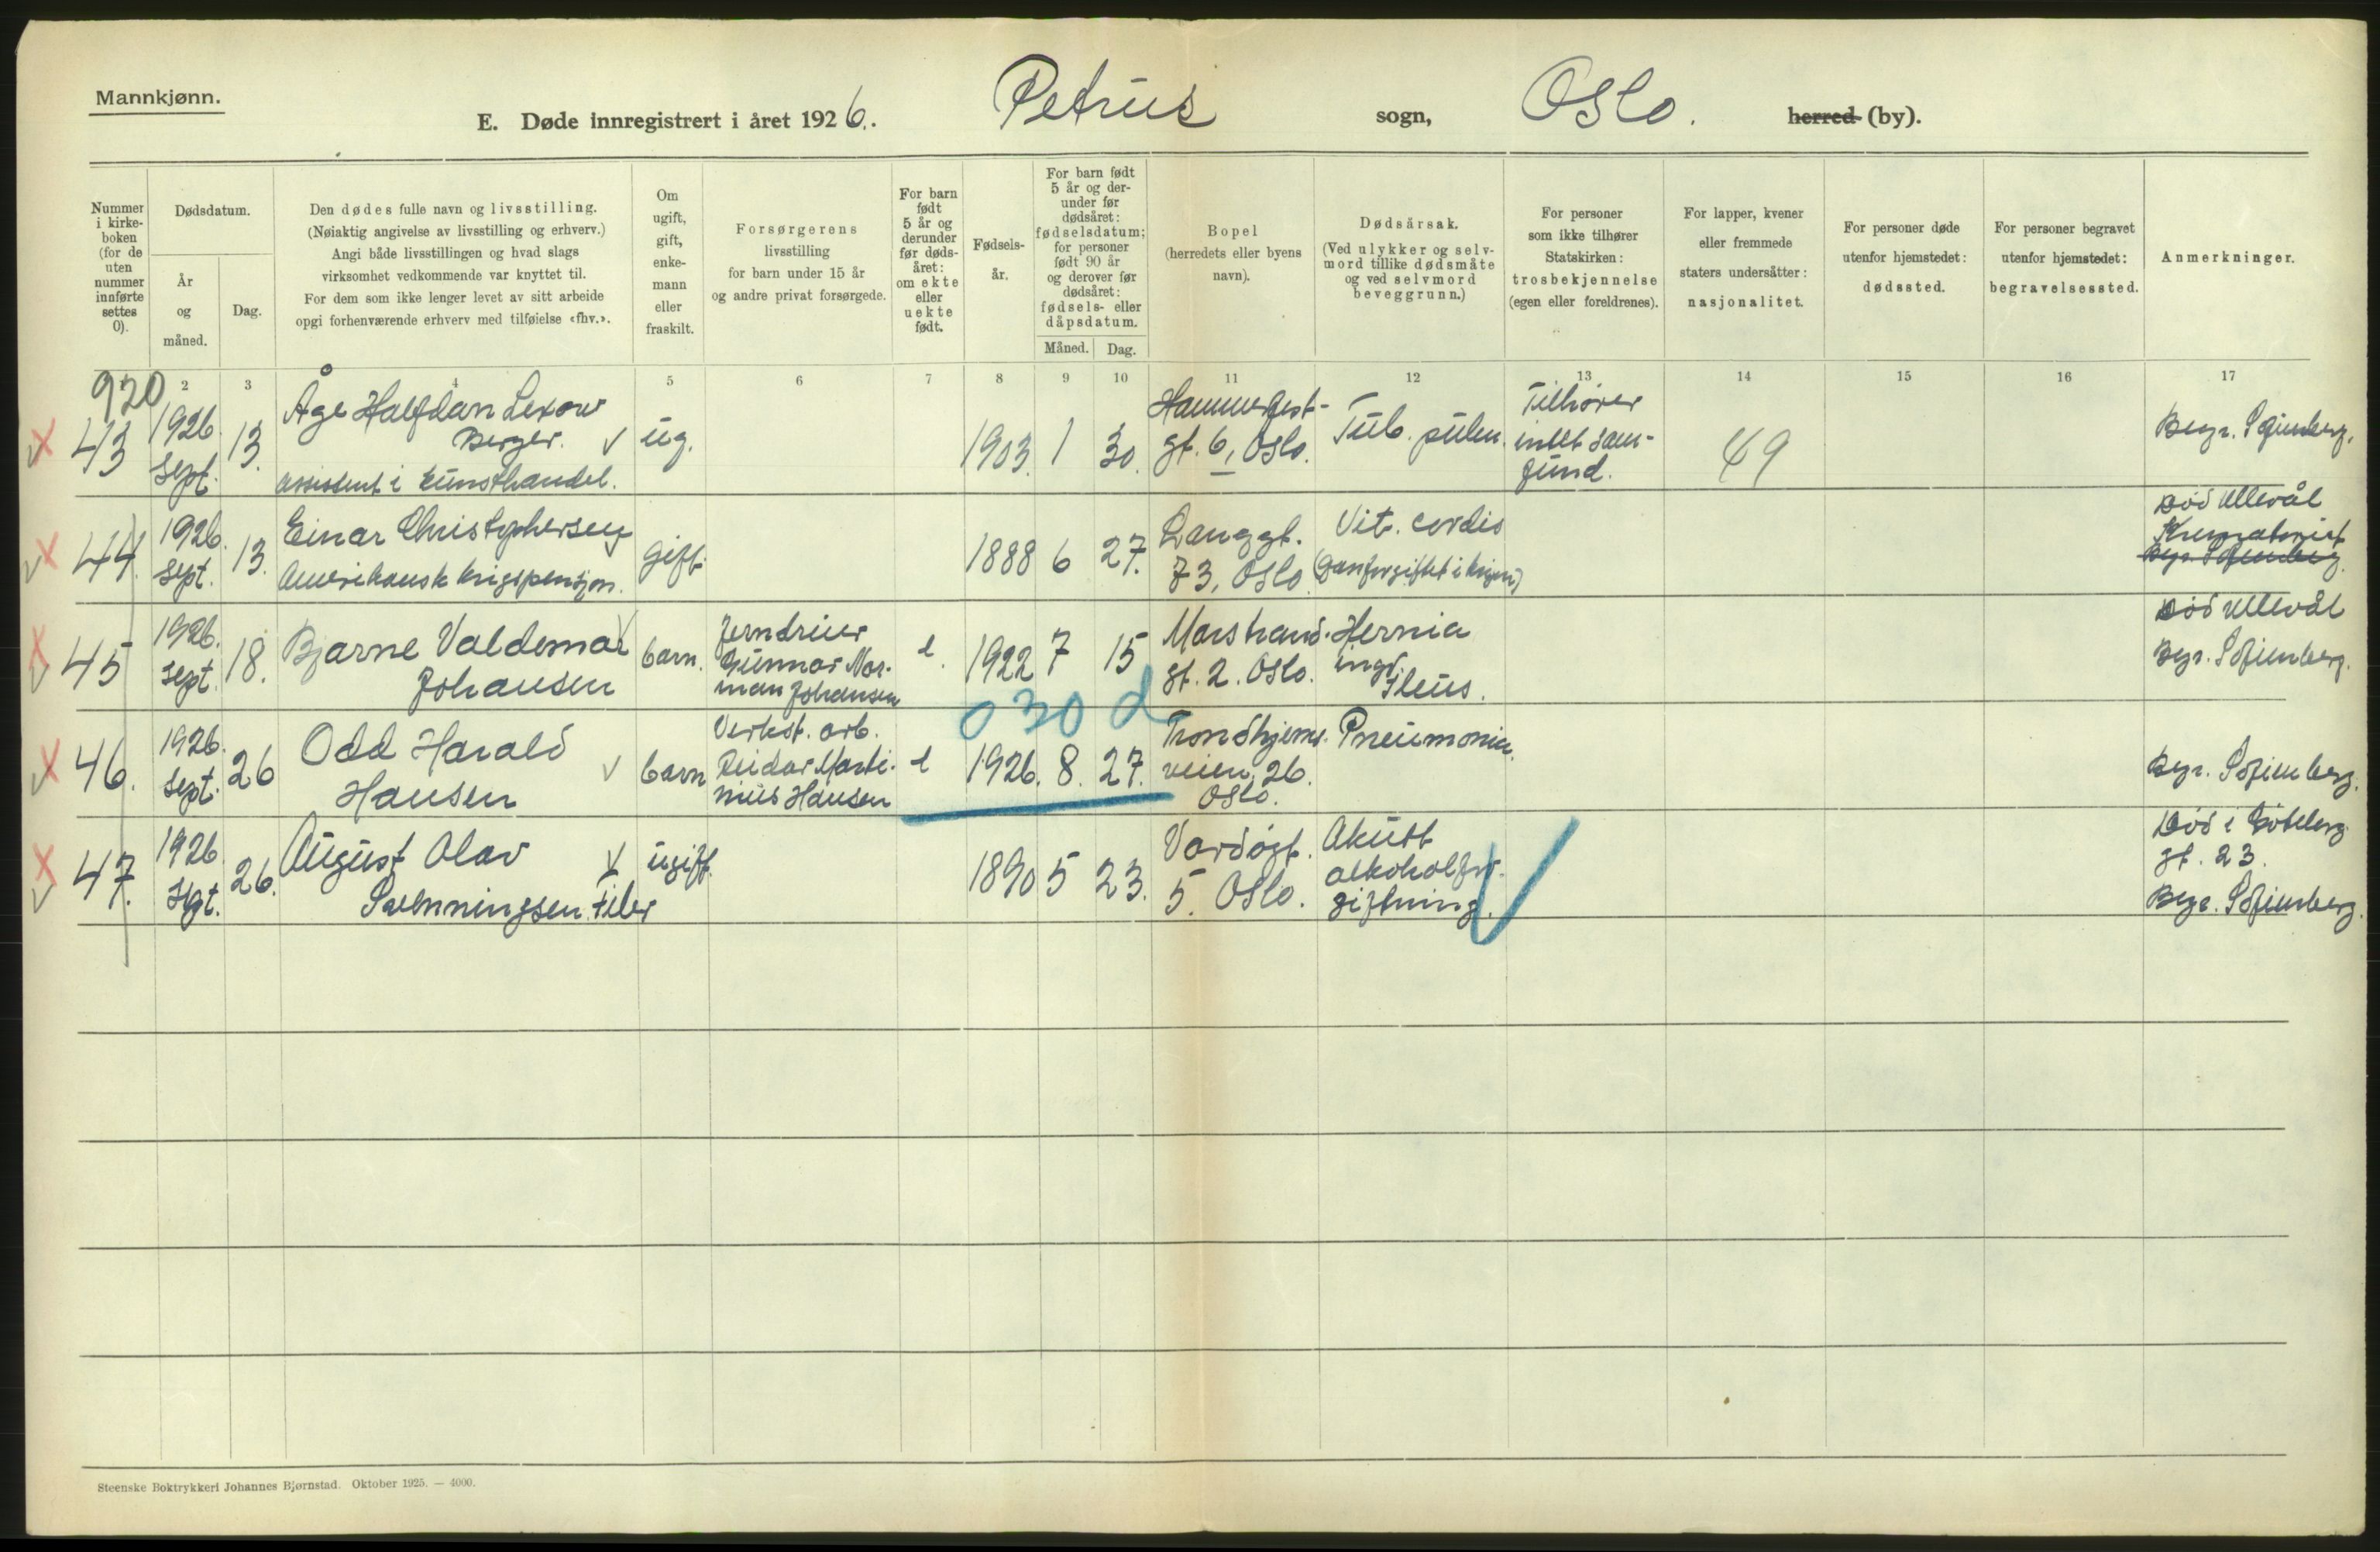 Mannkjønn.
E. Døde innregistrert i året 1926. Petrus sogn, Oslo. herred (by).
Nummer
i kirke-
boken
(for de
uten
nummer
innførte
settes
0).
Dødsdatum.
År
og
måned.
Dag.
Den dødes fulle navn og livsstilling.
(Nøiaktig angivelse av livsstilling og erhverv.)
Angi både livsstillingen og hvad slags
virksomhet vedkommende var knyttet til.
For dem som ikke lenger levet av sitt arbeide
opgi forhenværende erhverv med tilføielse «fhv.».
Om
ugift,
gift,
enke-
mann
eller
fraskilt.
Forsørgerens
livsstilling
for barn under 15 år
og andre privat forsørgede.
For barn
født
5 år og
derunder
før døds-
året:
om ekte
eller
uekte
født.
Fødsels-
år.
For barn født
5 år og der-
under før
dødsåret:
fødselsdatum;
for personer
født 90 år
og derover før
dødsåret:
fødsels- eller
dåpsdatum.
Måned. Dag.
Bopel
(herredets eller byens
navn).
Dødsårsak.
(Ved ulykker og selv-
mord tillike dødsmåte
og ved selvmord
beveggrunn.)
For personer
som ikke tilhører
Statskirken:
trosbekjennelse
(egen eller foreldrenes).
For lapper, kvener
eller fremmede
staters undersåtter:
nasjonalitet.
For personer døde
utenfor hjemstedet:
dødssted.
For personer begravet
utenfor hjemstedet:
begravelsessted.
Anmerkninger.
2 3 4 5 6 7 8 9 10 11 12 13 14 15 16 17
920
43
1926
Sept.
13.
Åge Halfdan Lexow
Berger.
assistent i kunsthandel.
ug.
1903. 1 30.
Hammerfest-
gt. 6, Oslo.
Tub. pulm.
Tilhører
intet sam-
fund.
49
Begr. Sofienberg.
44.
1926.
Sept.
13.
Einar Christophersen
Amerikansk krigspensjon.
gift.
1888 6 27.
Langgt.
73, Oslo.
Vit. cordis
(Gasforgiftet i krigen)
Død Ullevål
Krematoriet
Begr. Sofienberg.
45
1926.
Sept.
18.
Bjarne Valdemar
Johansen
barn.
Jerndreier
Gunnar Nor-
man Johansen
e.
1922 7 15
Marstrand.
gt. 2. Oslo.
Hernia
ingv.
Ileus.
Død Ullevål
Begr. Sofienberg.
0 30 d
46.
1926.
Sept.
26
Odd Harald
Hansen
barn
Verkst. arb.
Reidar Marti-
nius Hansen
e
1926. 8. 27.
Trondhjems.
veien 26.
Oslo.
Pneumonia.
Begr. Sofienberg.
47.
1926
Sept.
26.
August Olav
Svenningsen. Filer
ugift.
1890 5 23.
Vardøgt.
5. Oslo.
Akutt
alkoholfor-
giftning.
Død i Gøteborg
gt. 23.
Begr. Sofienberg.
Steenske Boktrykkeri Johannes Bjørnstad. Oktober 1925. — 4000.